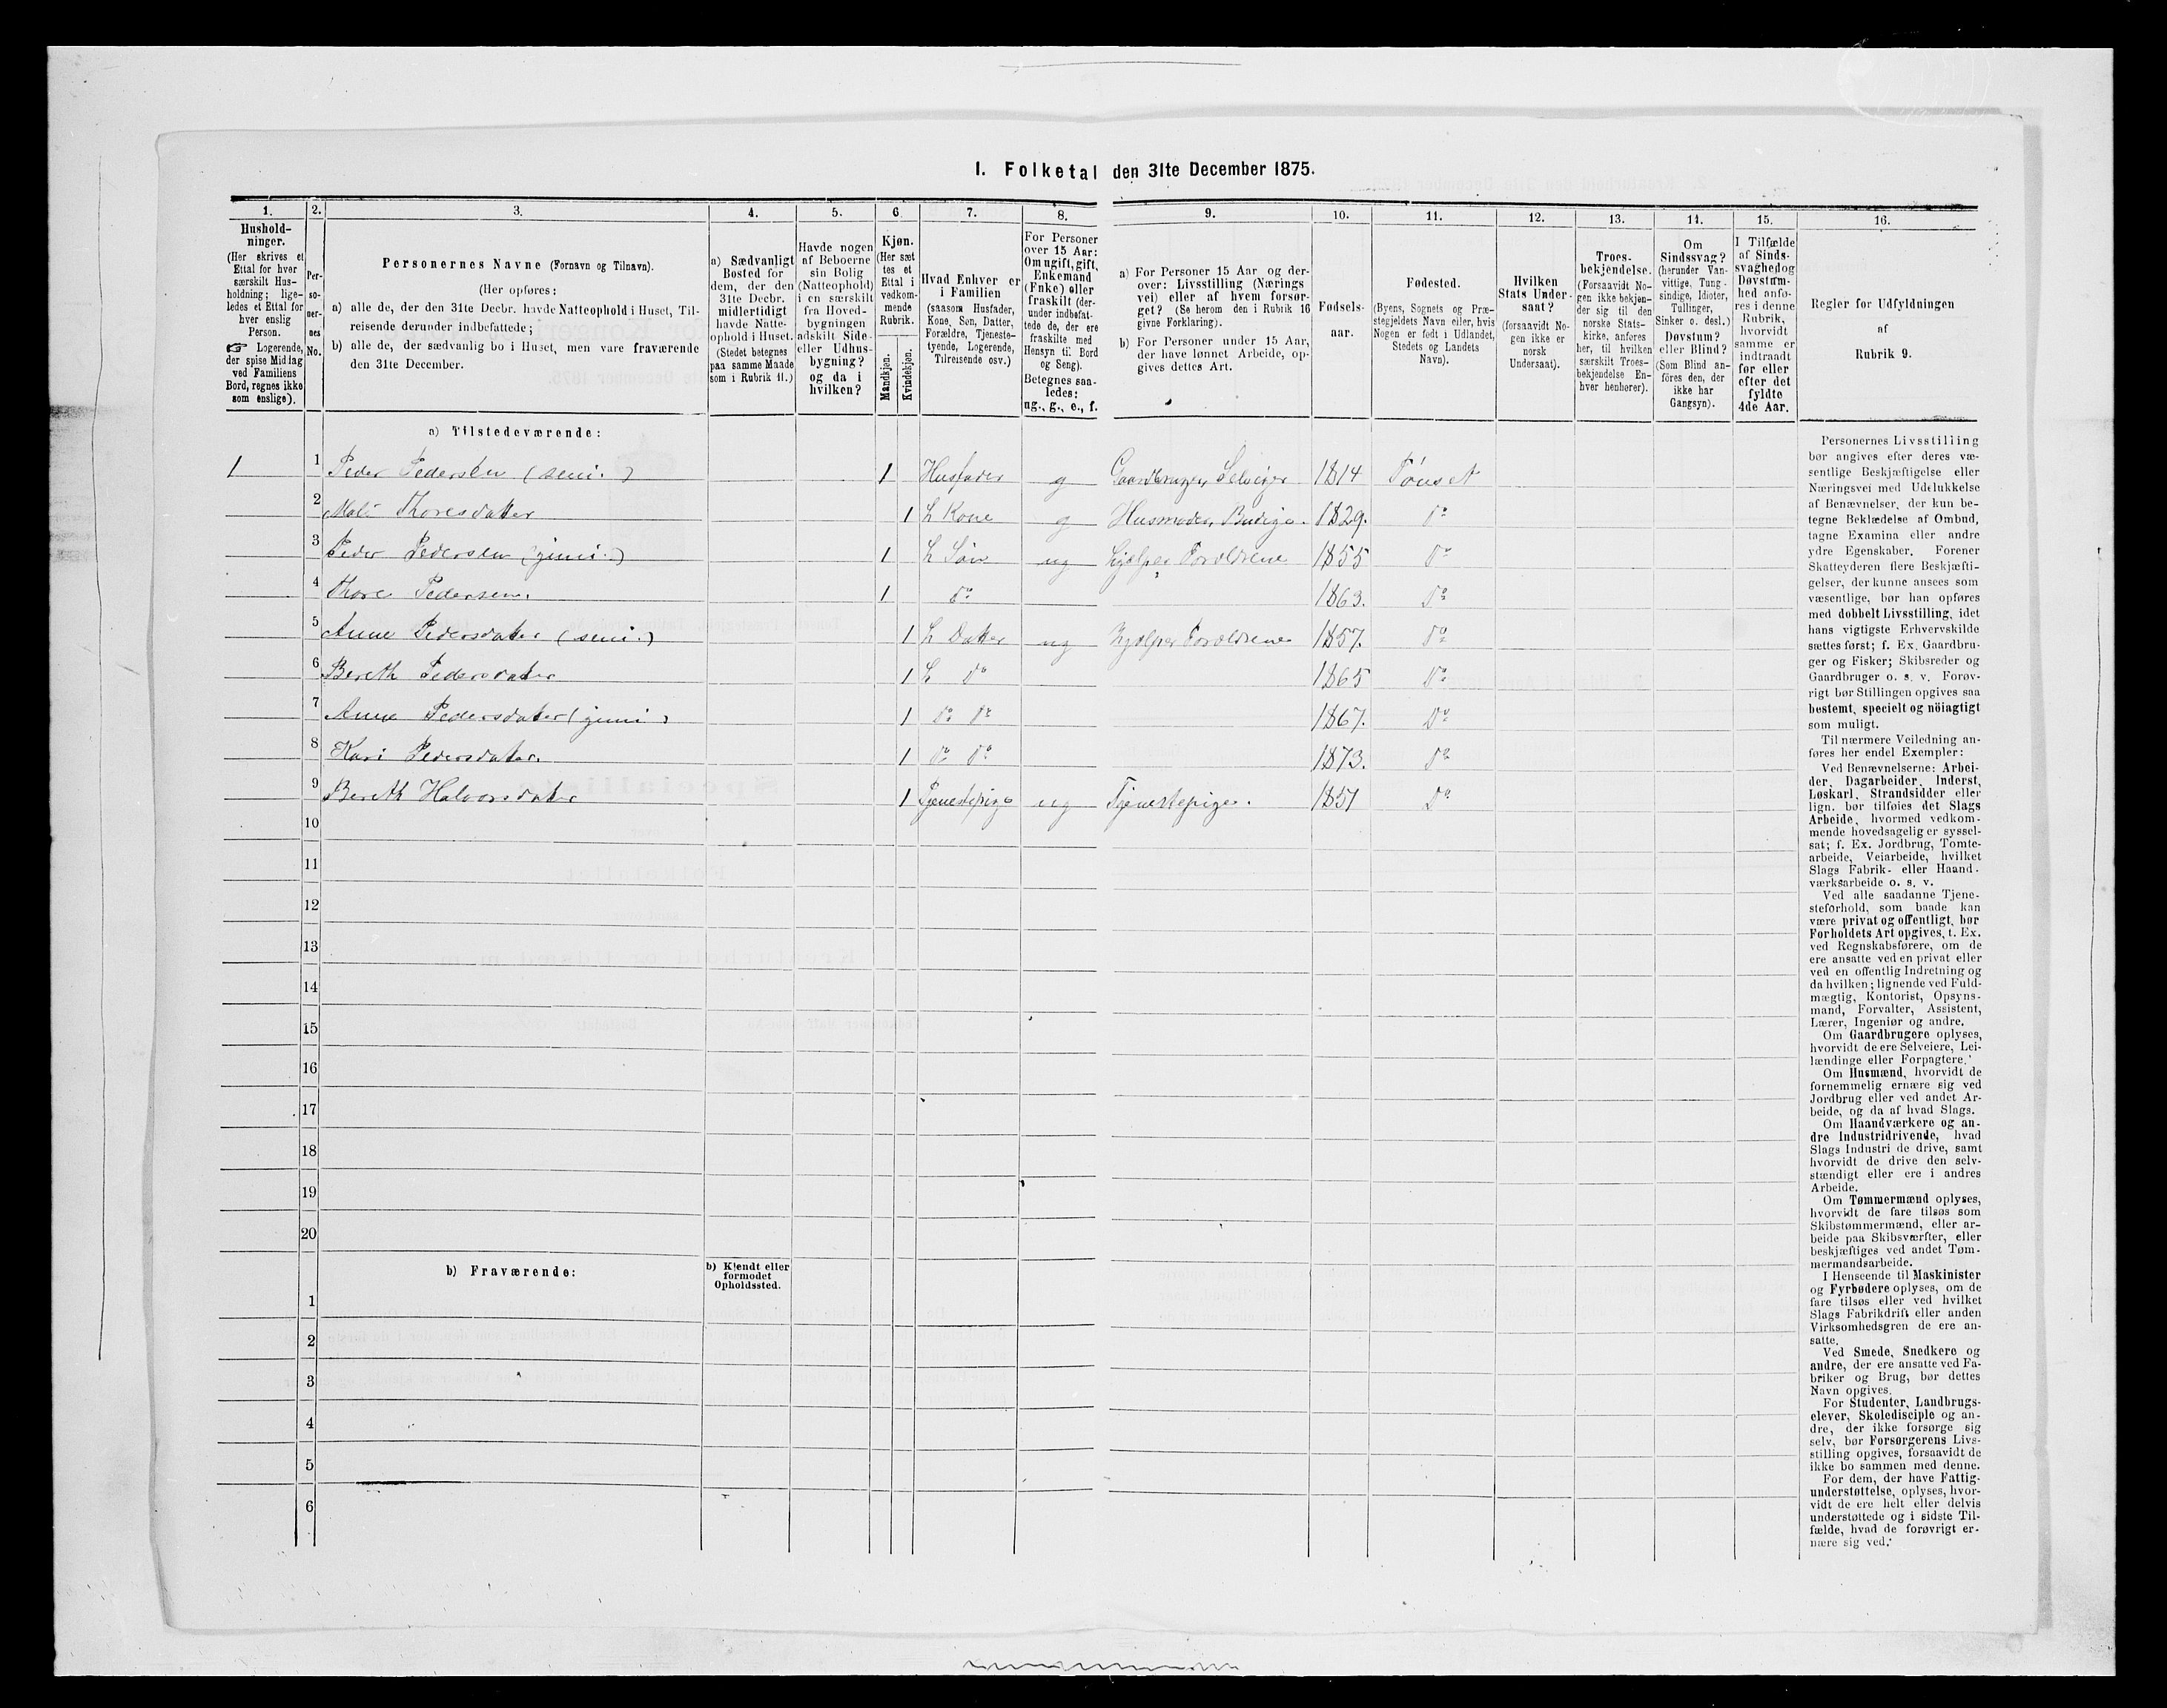 I. Folketal den 31te December 1875.
1. 2. 3. 4. 5. 6 7. 8. 9. 10. 11. 12. 13. 14. 15. 16.
Hushold-
ninger.
(Her skrives et
Ettal for hver
særskilt Hus-
holdning; lige-
ledes et Ettal for
hver enslig
Person.
☞ Logerende,
der spise Middag
ved Familiens
Bord, regnes ikke
som enslige).
Per-
so-
ner-
nes
No.
Personernes Navne (Fornavn og Tilnavn).
(Her opføres:
a) alle de, der den 31te Decbr. havde Natteophold i Huset, Til-
reisende derunder indbefattede;
b) alle de, der sædvanlig bo i Huset, men vare fraværende
den 31te December.
a) Sædvanligt
Bosted for
dem, der den
31te Decbr.
midlertidigt
havde Natte-
ophold i Huset.
(Stedet betegnes
paa samme Maade
som i Rubrik 11.)
Havde nogen
af Beboerne
sin Bolig
(Natteophold)
i en særskilt
fra Hoved-
bygningen
adskilt Side-
eller Udhus-
bygning?
og da i
hvilken?
Kjøn.
(Her sæt
tes et
Ettal i
vedkom-
mende
Rubrik.
Mandkjøn.
Kvindekjøn.
Hvad Enhver er
i Familien
(saasom Husfader,
Kone, Søn, Datter,
Forældre, Tjeneste-
tyende, Logerende,
Tilreisende osv.)
For Personer
over 15 Aar:
Om ugift, gift,
Enkemand
(Enke) eller
fraskilt (der-
under indbefat-
tede de, der ere
fraskilte med
Hensyn til Bord
og Seng).
Betegnes saa-
ledes:
ug., g., e., f.
a) For Personer 15 Aar og der-
over: Livsstilling (Nærings
vei) eller af hvem forsør-
get? (Se herom den i Rubrik 16
givne Forklaring).
b) For Personer under 15 Aar,
der have lønnet Arbeide, op-
gives dettes Art.
Fødsels-
aar.
Fødested.
(Byens, Sognets og Præ-
stegjeldets Navn eller, hvis
Nogen er født i Udlandet,
Stedets og Landets
Navn).
Hvilken
Stats Under-
saat?
(forsaavidt No-
gen ikke er
norsk
Undersaat).
Troes-
bekjendelse.
(Forsaavidt No-
gen ikke bekjen-
der sig til den
norske Stats-
kirke, anføres
her, til hvilken
særskilt Troes-
bekjendelse En-
hver henhører).
Om
Sindssvag?
(herunder Van-
vittige, Tung-
sindige, Idioter,
Tullinger,
Sinker o. desl.)
Døvstum?
eller Blind?
(Som Blind an-
føres den, der
ikke har
Gangsyn).
I Tilfælde
af Sinds-
svaghed og
Døvstum-
hed anfø-
res i denne
Rubrik,
hvorvidt
samme er
indtraadt
før eller
efter det
fyldte
4de Aar.
Regler for Udfyldningen
af
Rubrik 9.
a) Tilstedeværende:
1 1 Peder Pedersen (seni.) 1 Husfader g Gaardbruger, Selveier 1814 Tönset
2 Mali Thoresdatter 1 h Kone g Husmoder, Budeie. 1829. Do
3 Peder Pedersen (juni.) 1 h Sön ug hjelper Forældrene 1855 Do
4 Thore Pedersen. 1 Do 1863. Do
5 Anne Pedersdatter (seni.) 1 h Datter ug hjelper Forældrene 1857. Do
6 Bereth Pedersdatter 1 h Do 1865 Do
7 Anne Pedersdatter (juni.) 1 Do Do 1867. Do
8 Kari Pedersdatter. 1 Do Do 1873. Do
9 Bereth Halvorsdatter 1 Tjenestepige ug Tjenestepige. 1851 Do
10
11
12
13
14
15
16
17
18
19
20
b) Fraværende:
b) Kjendt eller
formodet
Opholdssted.
1
2
3
4
5
6
Personernes Livsstilling
bør angives efter deres væ-
sentlige Beskjæftigelse eller
Næringsvei med Udelukkelse
af Benævnelser, der kun be-
tegne Beklædelse af Ombud,
tagne Examina eller andre
ydre Egenskaber. Forener
Skatteyderen flere Beskjæfti-
gelser, der kunne ansees som
væsentlige, bør han opføres
med dobbelt Livsstilling, idet
hans vigtigste Erhvervskilde
sættes først; f. Ex. Gaardbru-
ger og Fisker; Skibsreder og
Gaardbruger o. s. v. Forøv-
rigt bør Stillingen opgives saa
bestemt, specielt og nöiagtigt
som muligt.
Til nærmere Veiledning an-
føres her endel Exempler:
Ved Benævnelserne: Arbei-
der, Dagarbeider, Inderst,
Løskarl, Strandsidder eller
lign. bør tilføies det Slags
Arbeide, hvormed vedkom-
mende hovedsagelig er syssel-
sat; f. Ex. Jordbrug, Tomte-
arbeide, Veiarbeide, hvilket
Slags Fabrik- eller Haand-
værksarbeide o. s. v.
Ved alle saadanne Tjene-
steforhold, som baade kan
være privat og offentligt, bør
Forholdets Art opgives, t. Ex.
ved Regnskabsførere, om de
ere ansatte ved en privat eller
ved en offentlig Indretning og
da hvilken; lignende ved Fuld-
mægtig, Kontorist, Opsyns-
mand, Forvalter, Assistent,
Lærer, Ingeniør og andre.
Om Gaardbrugere oplyses,
hvorvidt de ere Selveiere, Lei-
lændinge eller Forpagtere.
Om Husmænd, hvorvidt de
fornemmelig ernære sig ved
Jordbrug eller ved andet Ar-
beide, og da af hvad Slags.
Om Haandværkere og an-
dre Industridrivende, hvad
Slags Industri de drive, samt
hvorvidt de drive den selv-
stændigt eller ere i andres
Arbeide.
Om Tømmermænd oplyses,
hvorvidt de fare tilsøs som
Skibstømmermænd, eller ar-
beide paa Skibsværfter, eller
beskjæftiges ved andet Tøm-
mermandsarbeide.
I Henseende til Maskinister
og Fyrbødere oplyses, om de
fare tilsøs eller ved hvilket
Slags Fabrikdrift eller anden
Virksomhedsgren de ere an-
satte.
Ved Smede, Snedkere og
andre, der ere ansatte ved Fa-
briker og Brug, bør dettes
Navn opgives.
For Studenter, Landbrugs-
elever, Skoledisciple og an-
dre, der ikke forsørge sig
selv, bør Forsørgerens Livs-
stilling opgives, forsaavidt de
ikke bo sammen med denne.
For dem, der have Fattig-
understøttelse, oplyses, hvor-
vidt de ere helt eller delvis
understøttede og i sidste Til-
fælde, hvad de forøvrigt er-
nære sig ved.